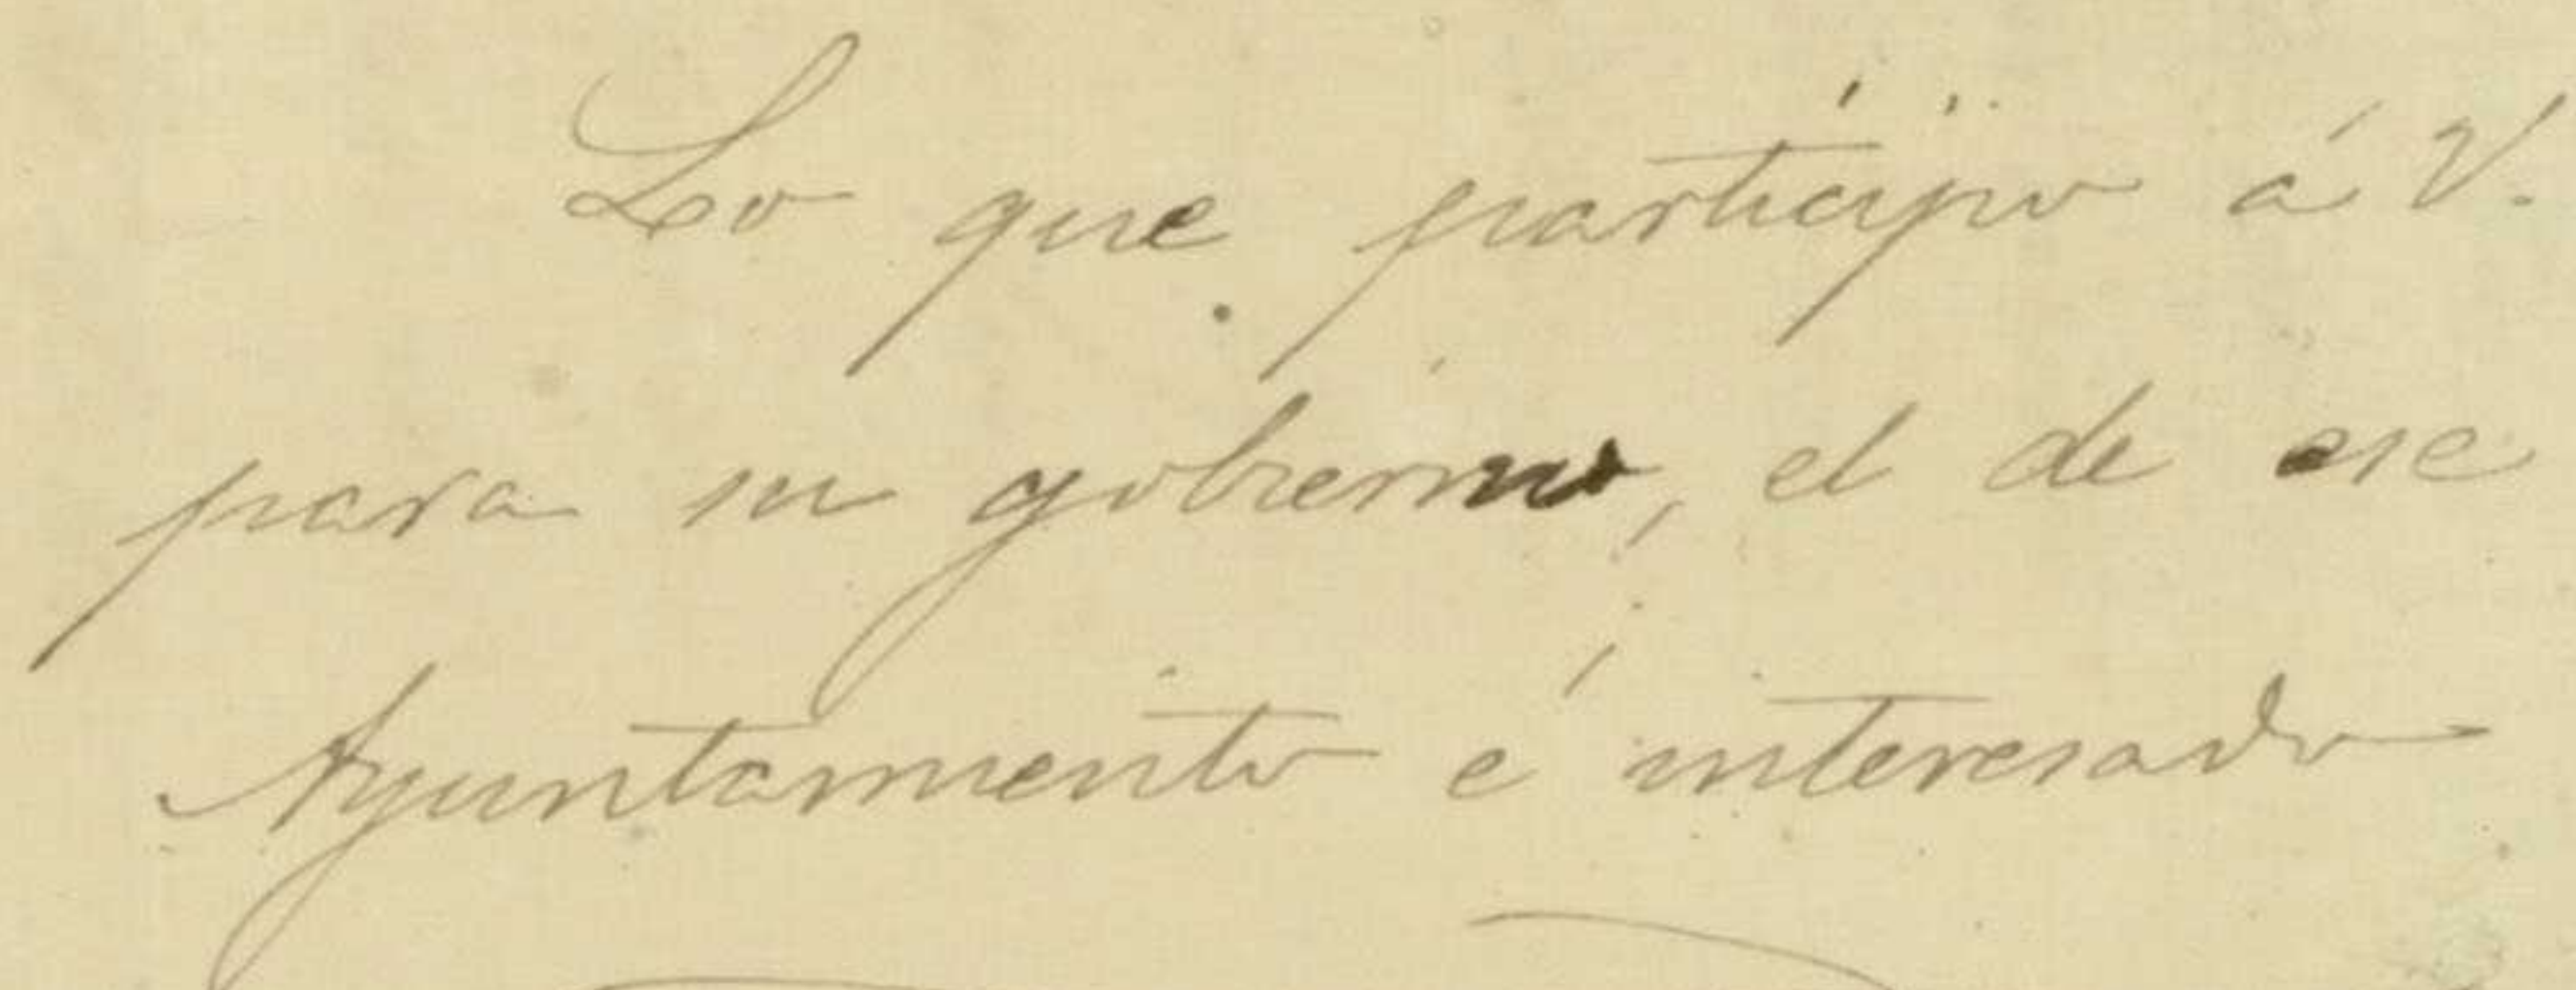 Lo que participo á V.
para su gobierno, el de ese
Ayuntamiento é interesado